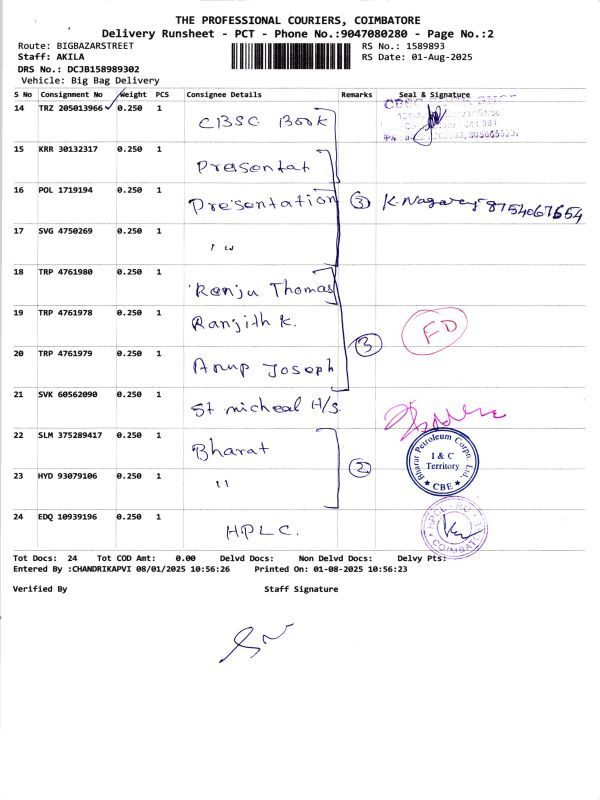 THE PROFESSIONAL COURIERS, COIMBATORE
Delivery Runsheet - PCT - Phone No.:9047080280 - Page No.:2
Route: BIGBAZARSTREET RS No.: 1589893
Staff: AKILA RS Date: 01-Aug-2025
DRS No.: DCJB158989302
Vehicle: Big Bag Delivery
S No Consignment No Weight PCS Consignee Details Remarks Seal & Signature
14 TRZ 205013966 0.250 1 CBSC Book
15 KRR 30132317 0.250 1 Presentat
16 POL 1719194 0.250 1 Presentation ③ K. Nagaraj 8754067654
17 SVG 4750269 0.250 1 "
18 TRP 4761980 0.250 1 Renju Thomas
19 TRP 4761978 0.250 1 Ranjith K. FD
20 TRP 4761979 0.250 1 Anup Joseph ③
21 SVK 60562090 0.250 1 St micheal H/S
22 SLM 375289417 0.250 1 Bharat Bharat Petroleum Corpn. Ltd. I & C Territory CBE
23 HYD 93079106 0.250 1 " ②
24 EDQ 10939196 0.250 1 HPLC. HPCL COIMBATORE
Tot Docs: 24 Tot COD Amt: 0.00 Delvd Docs: Non Delvd Docs: Delvy Pts:
Entered By :CHANDRIKAPVI 08/01/2025 10:56:26 Printed On: 01-08-2025 10:56:23
Verified By Staff Signature